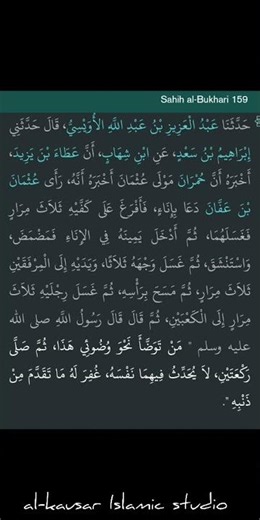 Sahih al-Bukhari 159
حَدَّثَنَا عَبْدُ الْعَزِيزِ بْنُ عَبْدِ اللَّهِ الأُوَيْسِيُّ، قَالَ حَدَّثَنِي
إِبْرَاهِيمُ بْنُ سَعْدٍ، عَنِ ابْنِ شِهَابٍ، أَنَّ عَطَاءَ بْنَ يَزِيدَ،
أَخْبَرَهُ أَنَّ حُمْرَانَ مَوْلَى عُثْمَانَ أَخْبَرَهُ أَنَّهُ، رَأَى عُثْمَانَ
بْنَ عَفَّانَ دَعَا بِإِنَاءٍ، فَأَفْرَغَ عَلَى كَفَّيْهِ ثَلاَثَ مِرَارٍ
فَغَسَلَهُمَا، ثُمَّ أَدْخَلَ يَمِينَهُ فِي الإِنَاءِ فَمَضْمَضَ،
وَاسْتَنْشَقَ، ثُمَّ غَسَلَ وَجْهَهُ ثَلاَثًا، وَيَدَيْهِ إِلَى الْمِرْفَقَيْنِ
ثَلاَثَ مِرَارٍ، ثُمَّ مَسَحَ بِرَأْسِهِ، ثُمَّ غَسَلَ رِجْلَيْهِ ثَلاَثَ
مِرَارٍ إِلَى الْكَعْبَيْنِ، ثُمَّ قَالَ قَالَ رَسُولُ اللَّهِ صلى الله
عليه وسلم " مَنْ تَوَضَّأَ نَحْوَ وُضُوئِي هَذَا، ثُمَّ صَلَّى
رَكْعَتَيْنِ، لاَ يُحَدِّثُ فِيهِمَا نَفْسَهُ، غُفِرَ لَهُ مَا تَقَدَّمَ مِنْ
ذَنْبِهِ ".
al-kausar Islamic studio